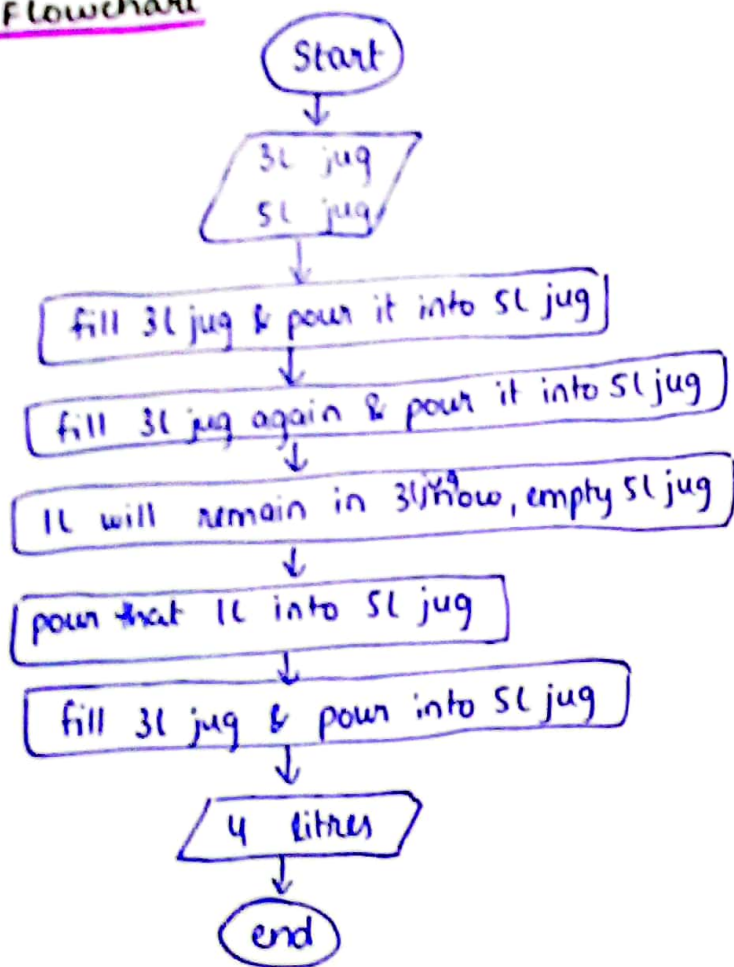 Flowchart
Start
3l jug
5l jug
fill 3l jug & pour it into 5l jug
fill 3l jug again & pour it into 5l jug
1l will remain in 3l jug now, empty 5l jug
pour that 1l into 5l jug
fill 3l jug & pour into 5l jug
4 litres
end